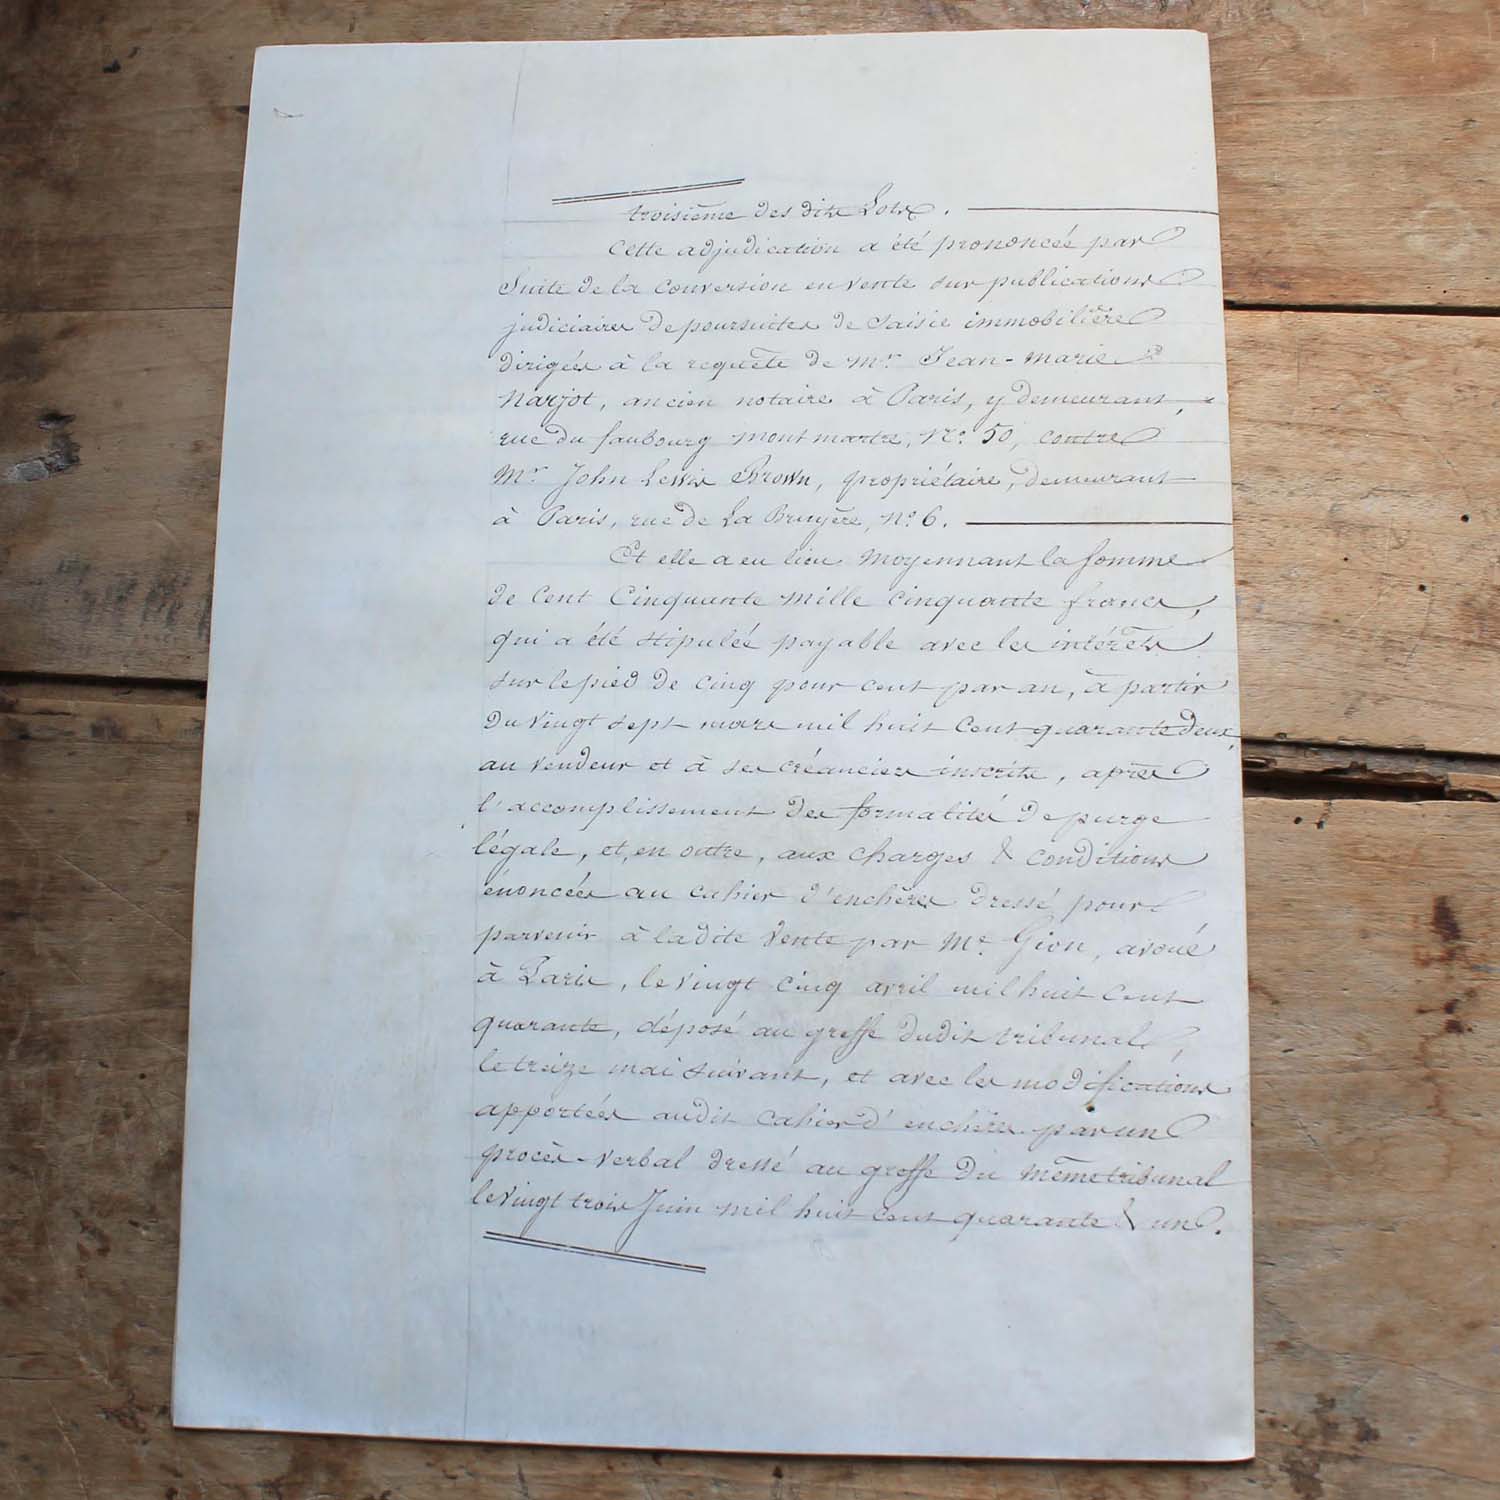 troisième des dits Lots.
Cette adjudication a été prononcée par
Suite de la conversion en vente sur publications
judiciaires de poursuites de saisie immobilière
dirigées à la requête de Mr. Jean-Marie
Narjot, ancien notaire à Paris, y demeurant,
rue du faubourg Montmartre, No. 50, contre
Mr. John Lewis Brown, propriétaire, demeurant
à Paris, rue de La Bruyère, No. 6.
Et elle a eu lieu Moyennant la Somme
de Cent Cinquante mille cinquante francs,
qui a été stipulée payable avec les intérêts
sur le pied de Cinq pour cent par an, à partir
du vingt sept mars mil huit Cent quarante deux,
au vendeur et à ses créanciers inscrits, après
l'accomplissement des formalités de purge
légale, et, en outre, aux charges & conditions
énoncées au cahier d'enchères dressé pour
parvenir à la dite Vente par Me. Gion, avoué
à Paris, le vingt cinq avril mil huit cent
quarante, déposé au greffe dudit tribunal,
le treize mai suivant, et avec les modifications
apportées audit cahier d'enchères par un
procès-verbal dressé au greffe du même tribunal
le vingt trois Juin mil huit cent quarante & un.